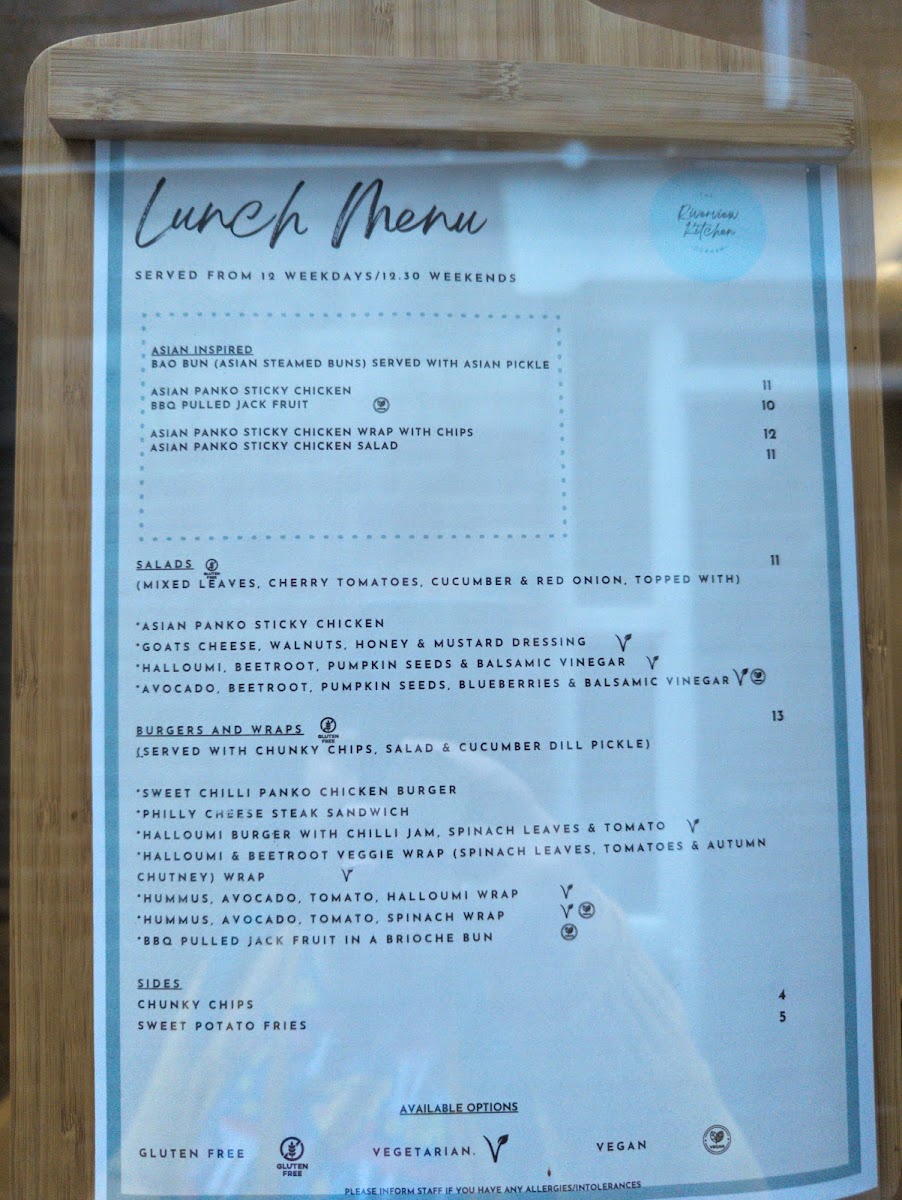 Lunch Menu
THE
Riverview
Kitchen
SERVED FROM 12 WEEKDAYS/12.30 WEEKENDS
ASIAN INSPIRED
BAO BUN (ASIAN STEAMED BUNS) SERVED WITH ASIAN PICKLE
ASIAN PANKO STICKY CHICKEN 11
BBQ PULLED JACK FRUIT 10
ASIAN PANKO STICKY CHICKEN WRAP WITH CHIPS 12
ASIAN PANKO STICKY CHICKEN SALAD 11
SALADS GLUTEN FREE 11
(MIXED LEAVES, CHERRY TOMATOES, CUCUMBER & RED ONION, TOPPED WITH)
*ASIAN PANKO STICKY CHICKEN
*GOATS CHEESE, WALNUTS, HONEY & MUSTARD DRESSING V
*HALLOUMI, BEETROOT, PUMPKIN SEEDS & BALSAMIC VINEGAR V
*AVOCADO, BEETROOT, PUMPKIN SEEDS, BLUEBERRIES & BALSAMIC VINEGAR V
BURGERS AND WRAPS GLUTEN FREE 13
(SERVED WITH CHUNKY CHIPS, SALAD & CUCUMBER DILL PICKLE)
*SWEET CHILLI PANKO CHICKEN BURGER
*PHILLY CHEESE STEAK SANDWICH
*HALLOUMI BURGER WITH CHILLI JAM, SPINACH LEAVES & TOMATO V
*HALLOUMI & BEETROOT VEGGIE WRAP (SPINACH LEAVES, TOMATOES & AUTUMN
CHUTNEY) WRAP V
*HUMMUS, AVOCADO, TOMATO, HALLOUMI WRAP V
*HUMMUS, AVOCADO, TOMATO, SPINACH WRAP V
*BBQ PULLED JACK FRUIT IN A BRIOCHE BUN
SIDES
CHUNKY CHIPS 4
SWEET POTATO FRIES 5
AVAILABLE OPTIONS
GLUTEN FREE GLUTEN FREE VEGETARIAN. V VEGAN VEGAN
PLEASE INFORM STAFF IF YOU HAVE ANY ALLERGIES/INTOLERANCES